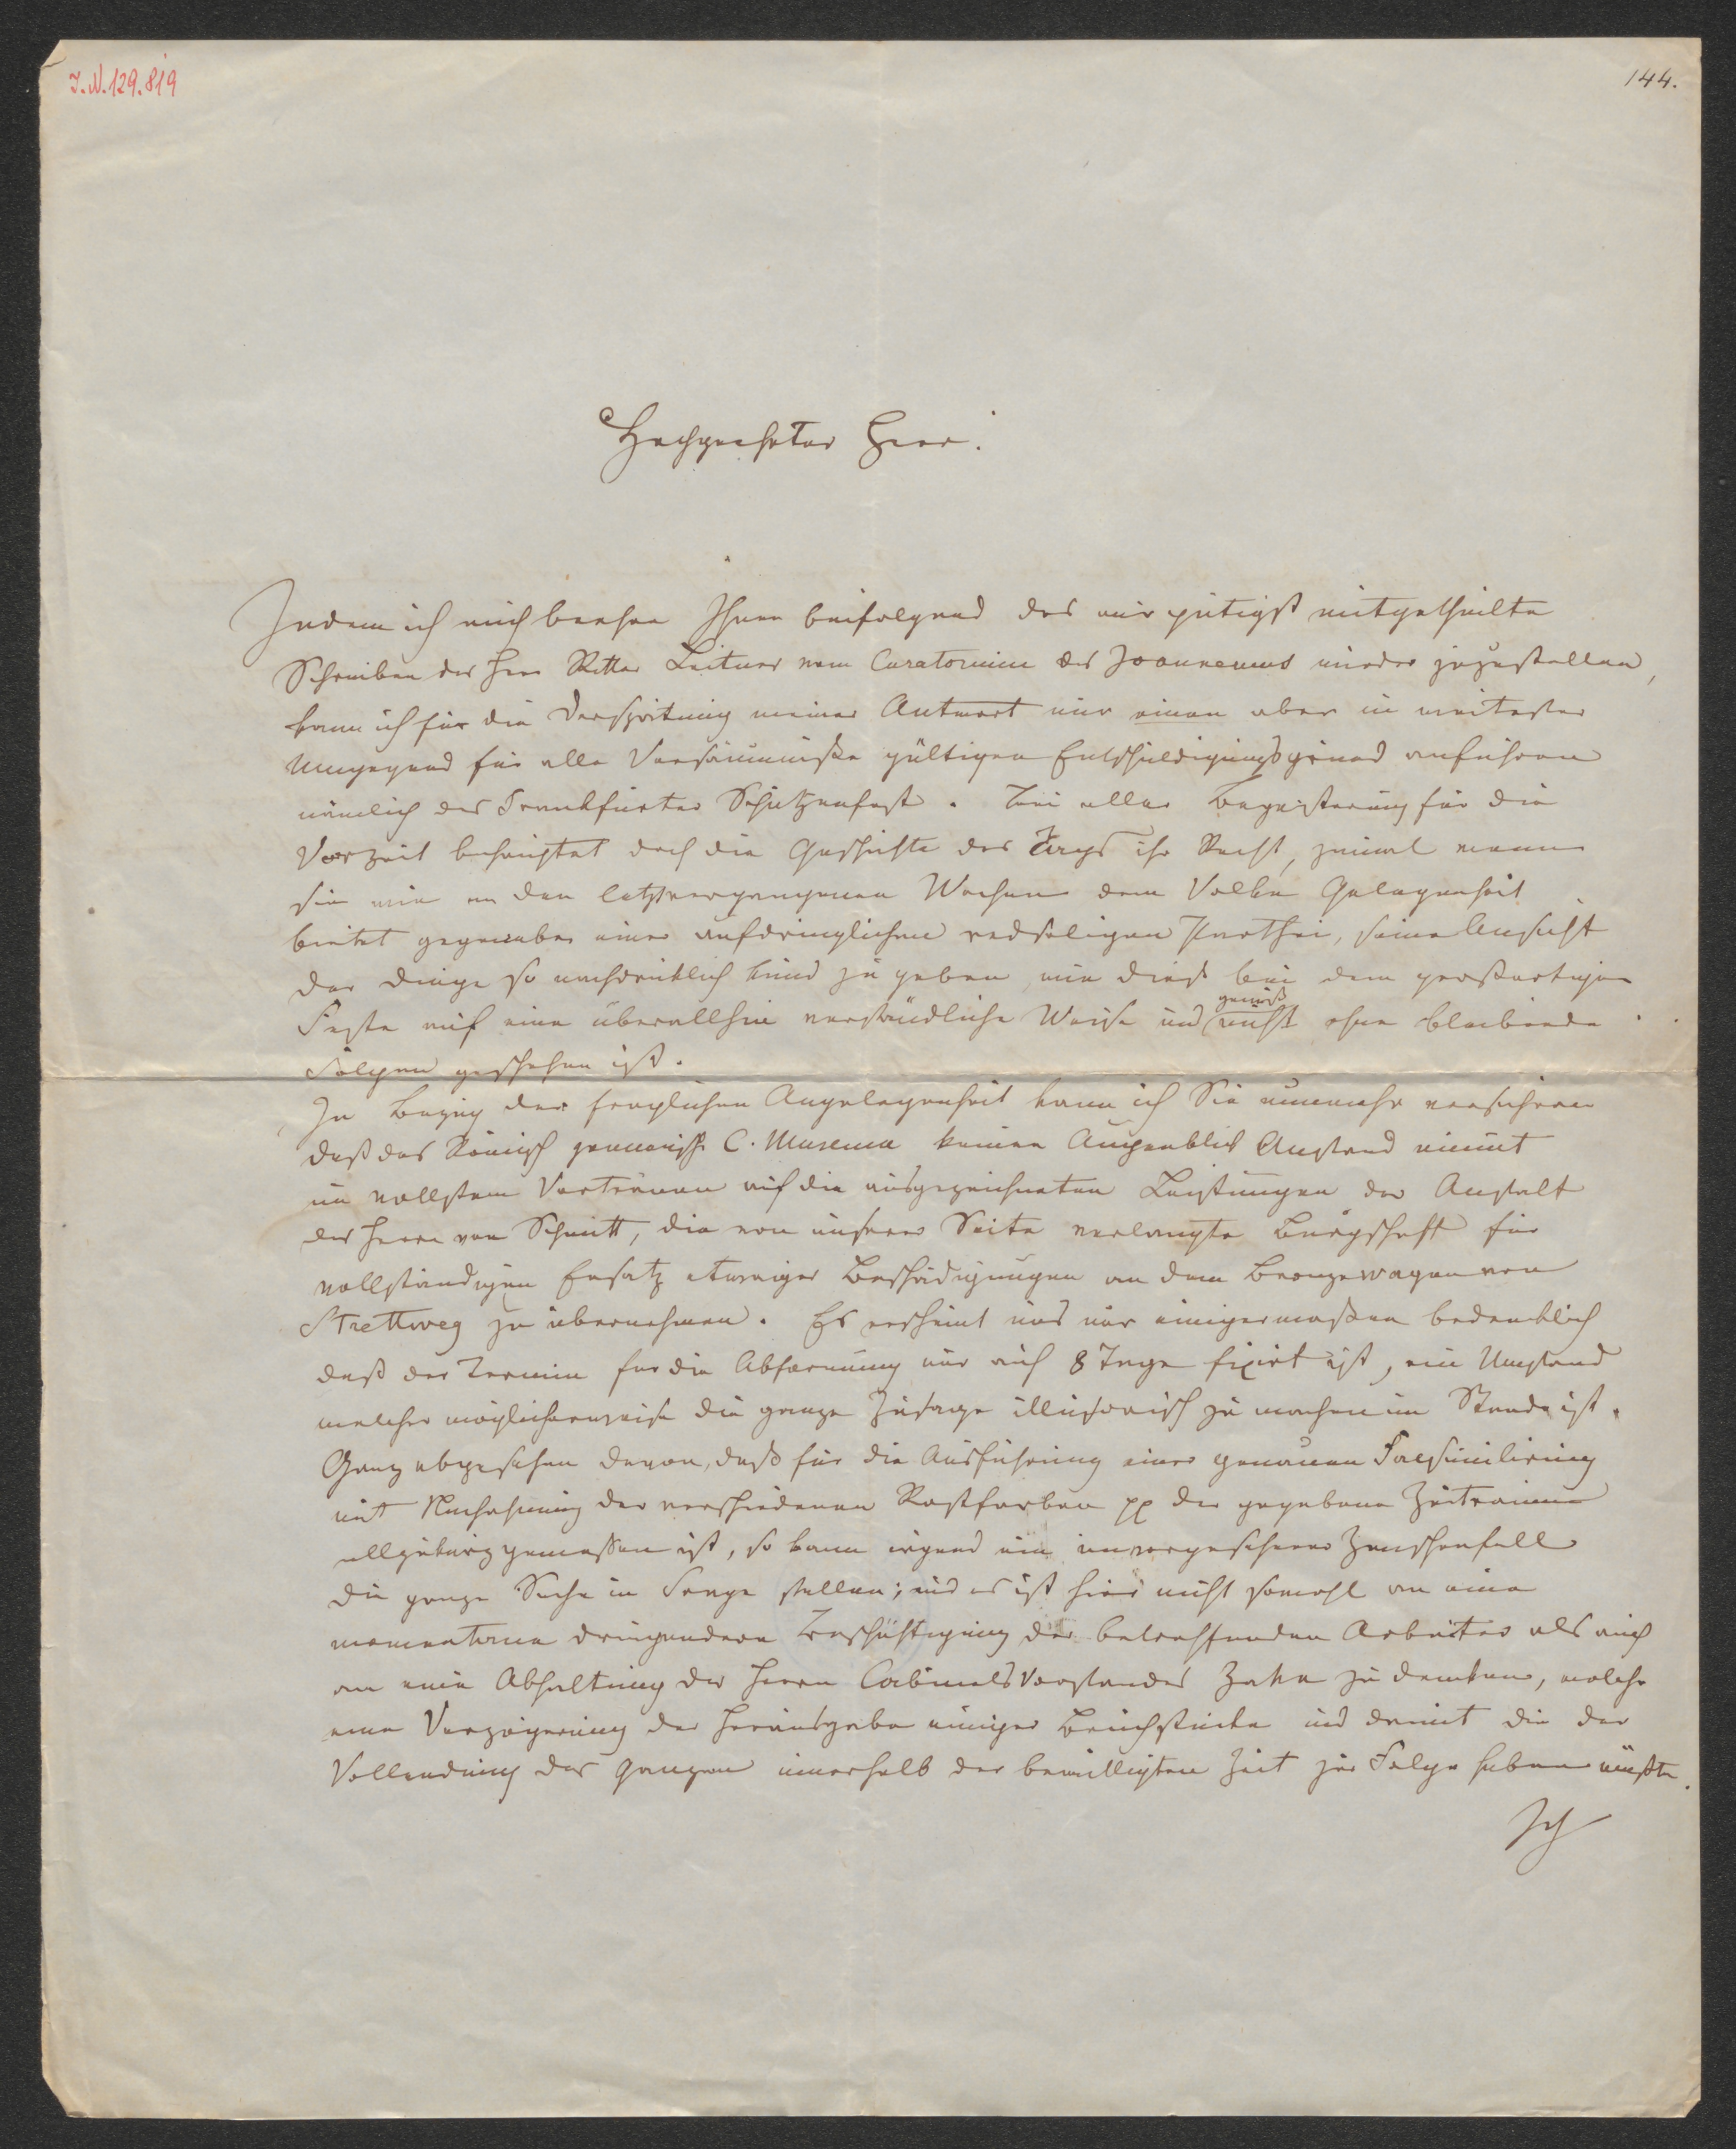 I.N.129.819
144.
Hochgeehrter Herr!
Indem ich mich beehre Ihnen beifolgend das mir gütigst mitgetheilte
Schreiben des Herr Ritter Leitner vom Curatorium des Joanneums wieder zuzustellen,
kann ich für die Verspätung meiner Antwort nur einen aber in weitester
Umgegend für alle Versäumniße gültigen Entschuldigungsgrund anführen
nämlich das Frankfurter Schützenfest. Bei aller Begeisterung für die
Vorzeit behauptet doch die Geschichte des Tags ihr Recht, zumal wenn
sie wie in den letztvergangenen Wochen dem Volke Gelegenheit
bietet gegenüber einer aufdringlichen redseligen Parthei, seine Ansicht
der Dinge so nachdrücklich kund zu geben, wie dieß bei dem großartigen
Feste auf eine überallhin verständliche Weise und gewiß nicht ohne bleibende
Folgen geschehen ist.
In Bezug der fraglichen Angelegenheit kann ich Sie nunmehr versichern
daß das Römisch germanische C. Museum keinen Augenblick Anstand nimmt
im vollstem Vertrauen auf die ausgezeichneten Leistungen der Anstalt
des Herrn von Schmitt, die von unserer Seite verlangte Bürgschaft für
vollständigen Ersatz etwaiger Beschädigungen an dem Bronzewagen von
Strettweg zu übernehmen. Es erscheint uns nur einigermaßen bedenklich
daß der Termin für die Abformung nur auf 8 Tage fixirt ist, ein Umstand
welcher möglicherweise die ganze Zusage illusorisch zu machen im Stande ist.
Ganz abgesehen davon, daß für die Ausführung einer genauen Facsimilirung
mit Nachahmung der verschiedenen Rostfarben pp der gegebene Zeitraum
allzukurz gemessen ist, so kann irgend ein unvorgesehener Zwischenfall
die ganze Sache in Frage stellen; und es ist hier nicht sowohl an eine
momentane dringendere Beschäftigung der betreffenden Arbeiter als auch
an eine Abhaltung des Herrn Cabinetsvorstandes Zahn zu denken, welche
eine Verzögerung der Herausgabe einiger Bruchstücke und damit die der
Vollendung des Ganzen innerhalb der bewilligten Zeit zur Folge haben müßte.
Ich